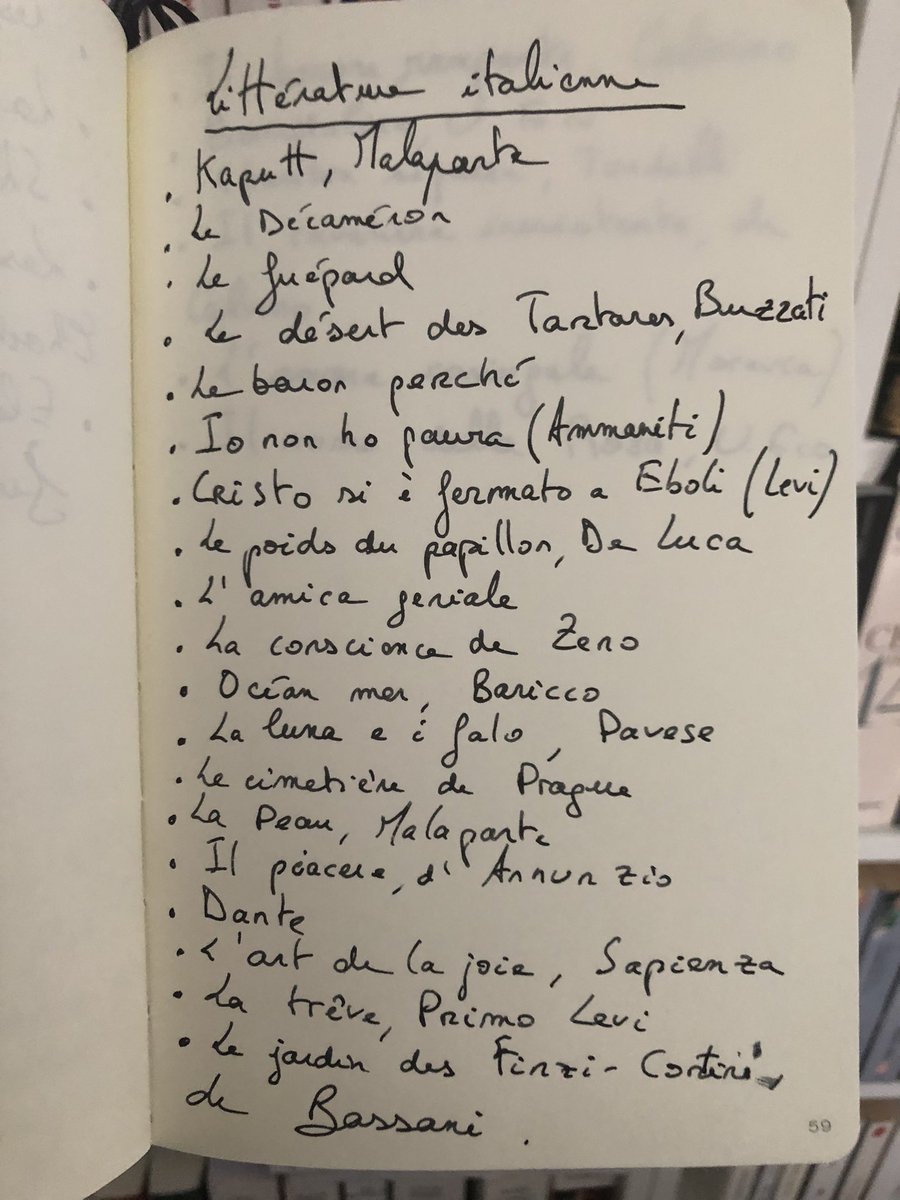 Littérature italienne
. Kaputt, Malaparte
. Le Décaméron
. Le guépard
. Le désert des Tartares, Buzzati
. Le baron perché
. Io non ho paura (Ammaniti)
. Cristo si è fermato a Eboli (Levi)
. Le poids du papillon, De Luca
. L'amica geniale
. La conscience de Zeno
. Océan mer, Baricco
. La luna e i falo, Pavese
. Le cimetière de Prague
. La Peau, Malaparte
. Il piacere, d'Annunzio
. Dante
. L'art de la joie, Sapienza
. La trêve, Primo Levi
. Le jardin des Finzi-Contini,
de Bassani.
59